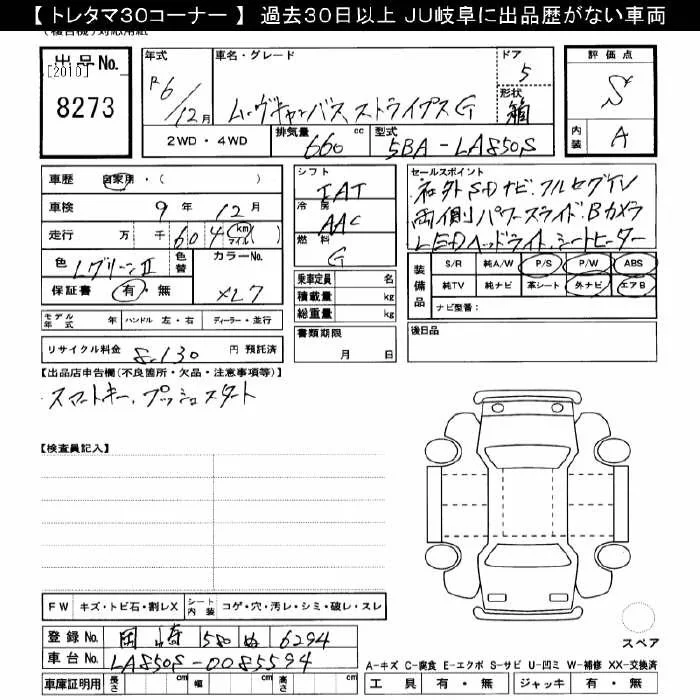 【 トレタマ30コーナー 】 過去30日以上 JU岐阜に出品歴がない車両
出品No.
[2010]
8273
年式
R6/12月
車名・グレード
ムーヴキャンバス ストライプス G
ドア
5
形状
箱
2WD・4WD
排気量
660 cc
型式
5BA-LA850S
評価点
S
内装
A
車歴 自家用・( )
車検 9年 12月
走行 万 千 604 km マイル
色 Lグリーン II
色替
カラーNo.
XL7
保証書 有・無
モデル年式 年 ハンドル 左・右 ディーラー・並行
リサイクル料金 8,130 円 預託済
シフト
IAT
冷房
AAC
燃料
G
乗車定員 名
積載量 kg
総重量 kg
書類期限
月 日
セールスポイント
社外SDナビ.フルセグTV
両側パワースライド.Bカメラ
LEDヘッドライト.シートヒーター
装備品
S/R 純A/W P/S P/W ABS
純TV 純ナビ 革シート 外ナビ エアB
ナビ型番:
後日品
【出品店申告欄(不良箇所・欠品・注意事項等)】
・スマートキー.プッシュスタート
【検査員記入】
FW キズ・トビ石・割レX シート内装 コゲ・穴・汚レ・シミ・破レ・スレ
登録No. 岡崎 580 ぬ 6294
車台No. LA850S-0085594
車庫証明用 長さ cm 幅 cm 高さ cm
スペア
A-キズ C-腐食 E-エクボ S-サビ U-凹ミ W-補修 XX-交換済
工具 有・無 ジャッキ 有・無